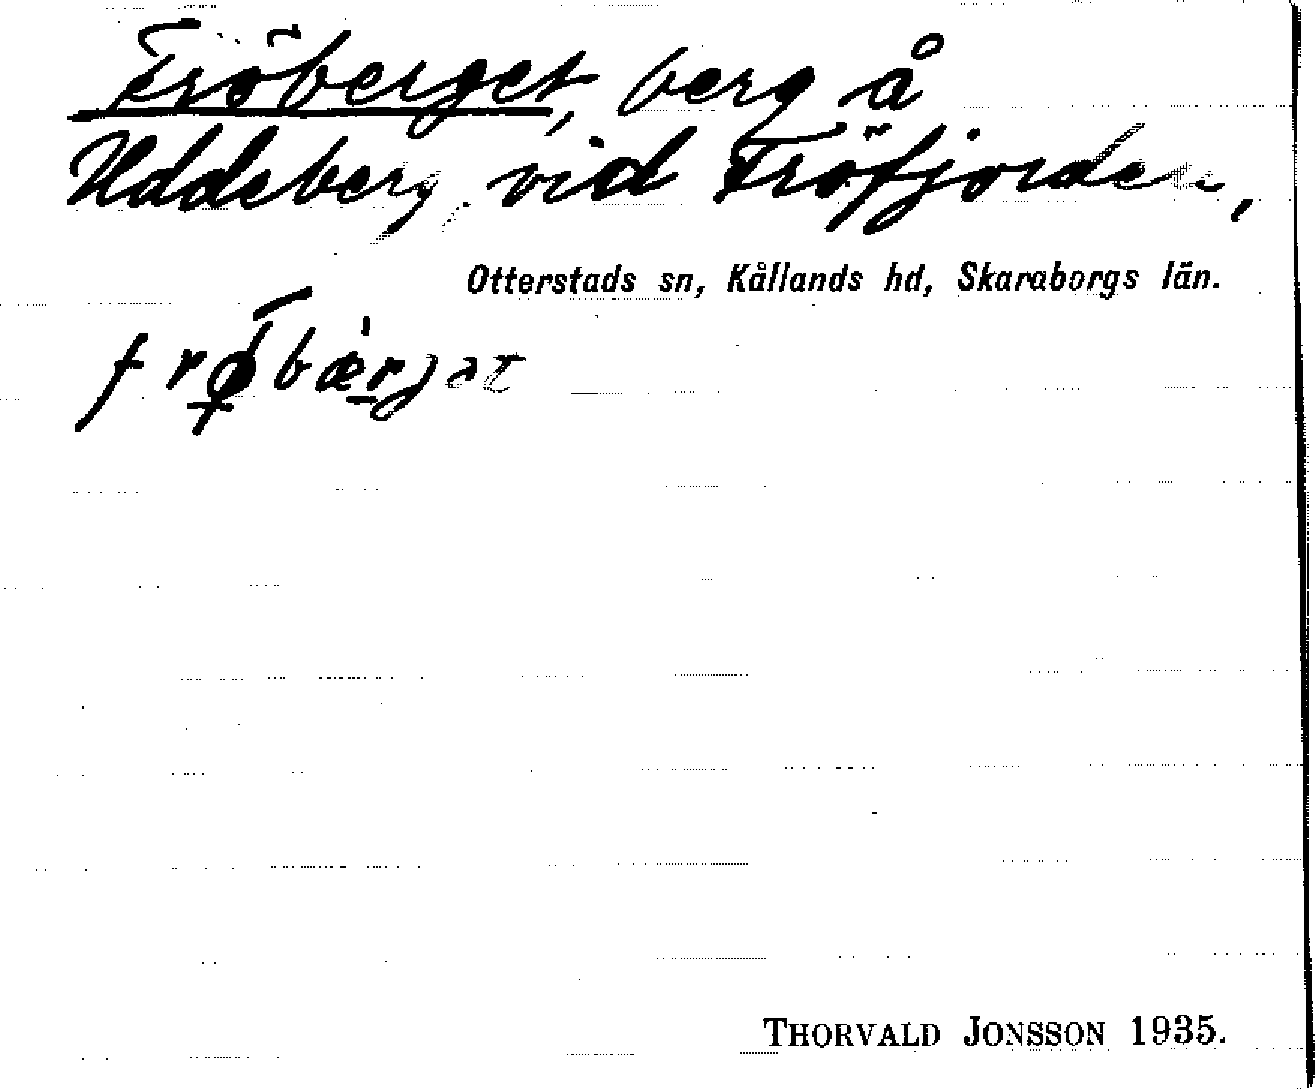 Fröberget, berg å
Uddeberg, vid Fröfjorden,
Otterstads sn, Kållands hd, Skaraborgs län.
THORVALD JONSSON 1935.